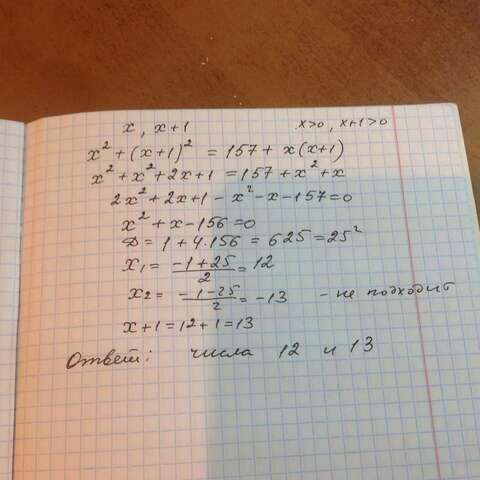 x, x+1 x>0, x+1>0
x² + (x+1)² = 157 + x(x+1)
x² + x² + 2x + 1 = 157 + x² + x
2x² + 2x + 1 - x² - x - 157 = 0
x² + x - 156 = 0
D = 1 + 4·156 = 625 = 25²
x₁ = (-1+25)/2 = 12
x₂ = (-1-25)/2 = -13 - не подходит
x+1 = 12+1 = 13
Ответ: числа 12 и 13